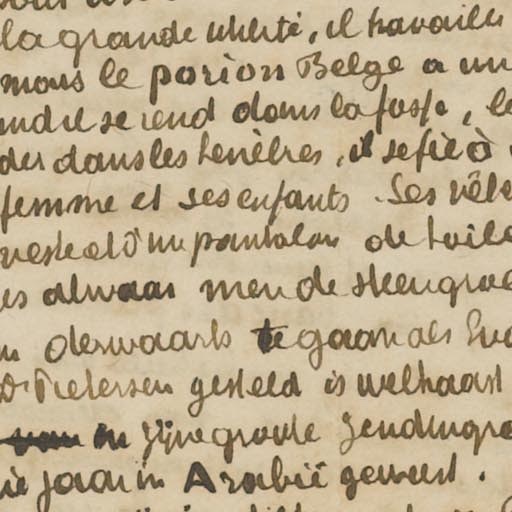 la grande liberté, il travailler
mais le porion Belge a un
and il se rend dans la fosse, le
der dans les ténèbres, il se fie à
femme et ses enfants. Ses vête
veste et d'un pantalon de toile
es alwaar men de steengroe
n derwaarts te gaan als Eva
Ds Pietersen gesteld is welhaast
van in zijne groote Zendingre
ie jaar in Arabië geweest.